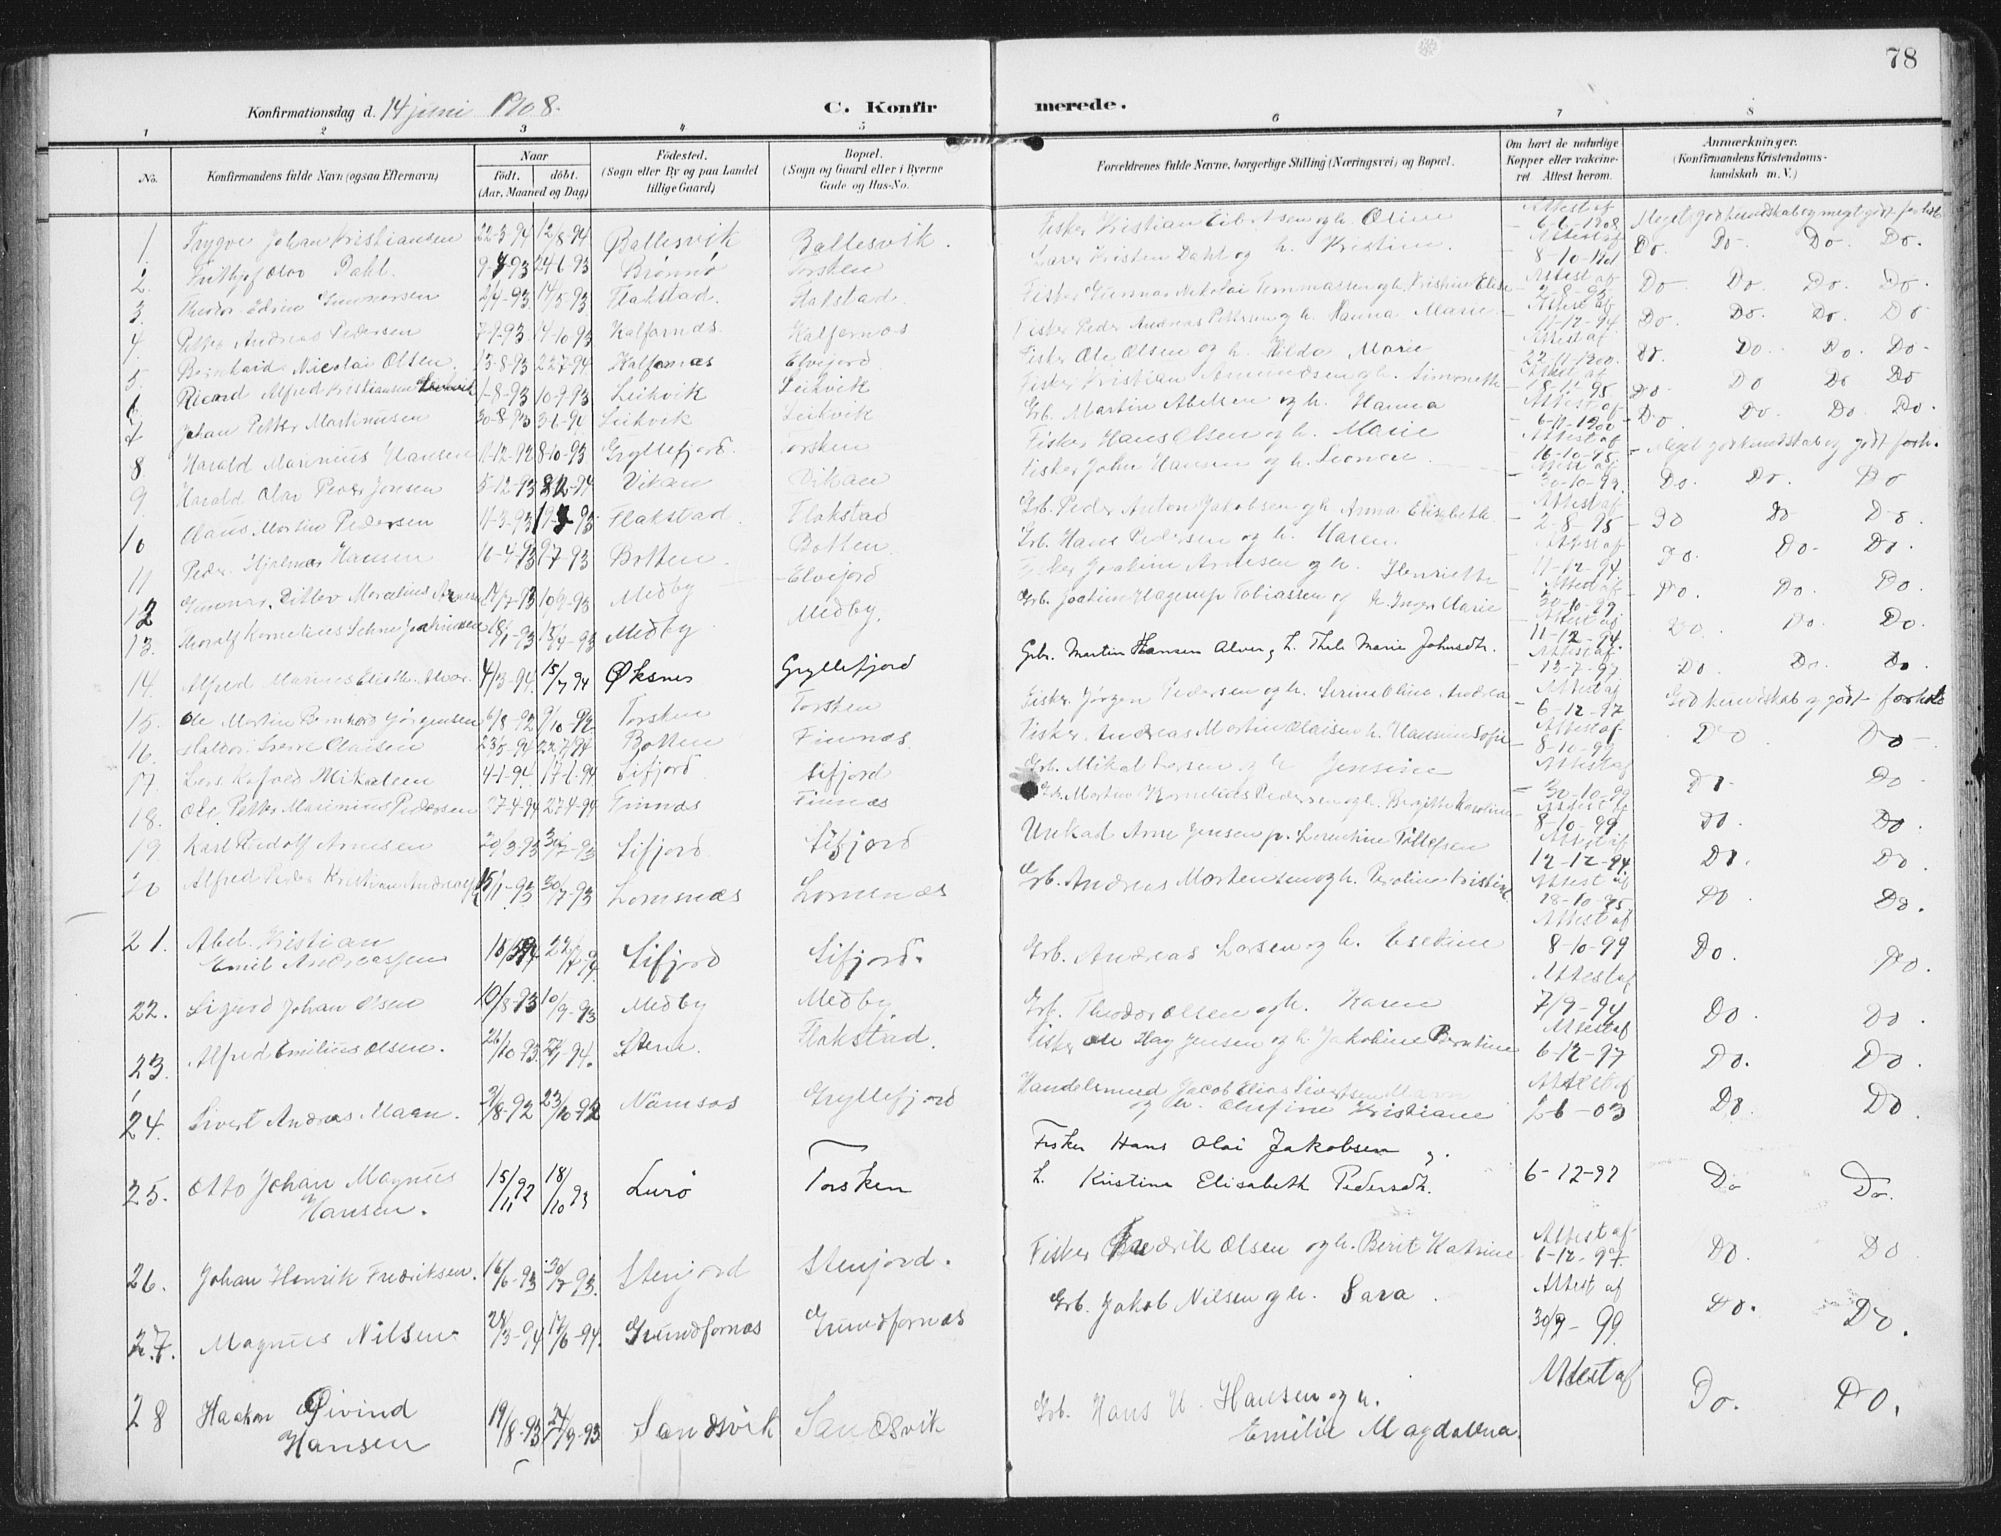 78
Konfirmationsdag d. 14 juni 1908. C. Konfir merede.
1 2 3 4 5 6 7 8
No. Konfirmandens fulde Navn (ogsaa Efternavn) Naar Født. døbt. (Aar, Maaned og Dag) Fødested. (Sogn eller By og paa Landet tillige Gaard) Bopæl. (Sogn og Gaard eller i Byerne Gade og Hus-No. Forældrenes fulde Navne, borgerlige Stilling (Næringsvei) og Bopæl. Om havt de naturlige Kopper eller vakcineret Attest herom. Anmærkninger. (Konfirmandens Kristendomskundskab m. V.)
1. Trygve Johan Kristiansen 22-3-94 12/8-94 Ballesvik Ballesvik. Fisker Kristian og h. Oline Attest af 6-6-1908 Meget god kundskab og meget godt forhold
2. Olav Dahl. 93 93 Brønnø Torsken Lærer Kristen Dahl og h. Kristine. Attest af 8-10- Do Do Do Do.
3. Theodor Edvin Gunnarsen 2/4-93 14/5-93 Flakstad. Flakstad. Fisker Gunnar Nikolai Tommassen og h. Kristine Elise Attest af 2-8-95 Do Do Do Do.
4. Petter Andreas Pedersen 93 14-10-93 Kalfarnes Kalfarnes Fisker Peder Andreas Pettersen og h. Hanna Marie Attest af 11-12-94 Do. Do. Do. Do
5. Bernhard Nicolai Olsen. 13-8-93 22-7-94 Kalfarnes Elvejord Fisker Ole Olsen og h. Hilda Marie Attest af 22-11-1900. Do. Do. Do. Do
6 Ricard Alfred Kristiansen 1-8-93 10-9-93 Leikvik Leikvik Fisker Kristian Amundsen og h. Simonette Attest af 18-12-95 Do Do Do Do
7 Johan Petter Martinusen 30-8-93 3-1-94 Leikvik Leikvik Grb. Martin Abelsen og h. Hanna Attest af 6-11-1200 Do Do. Do. Do.
8 Harald Marinius Hansen 11-12-92 8-10-93 Gryllefjord. Torsken Fisker Hans Olsen og h. Marie Attest af 16-10-95 Meget god kundskab og godt forh.
9 Harald Olav Peder Jensen 5-12-93 94 Vikan Vikan Fisker Johan Hansen og h. Leonore. Attest af 30-10-99. Do. Do. Do
10 Claus Morten Pedersen 11-3-93 93 Flakstad. Flakstad Grb. Peder Anton Jakobsen og h. Anna Elisabeth. Attest af 2-8-95 Do Do Do.
11 Peder Hjalmar Hansen 16-4-93 93 Botten. Botten. Grb. Hans Pedersen og h. Maren. Attest af 11-12-94 Do. Do. Do.
12 Gunnar Ditlev Moralius 93 93 Medby Elvejord Fisker Joakim Arnesen og h. Henriette Attest af 30-10-99. Do. Do. Do.
13. Thoralf Kornelius Sehne Joakimsen 18/1-93 15/4-93 Medby. Medby. Grb. Joakim Hagerup Tobiassen og h. Inger Marie Attest af 11-12-94. Do. Do. Do.
14. Alfred Marinus Eliseth. Alver. 4/3-94. 15/7 94 Øksnes Gryllefjord Grbr. Martin Hansen Alver og h. Thale Marie Johnsdtr. Attest af 12-7-97 Do. Do. Do.
15. Ole Martin Bernhard Jørgensen 6/8-92 9/10-92 Torsken Torsken Fisker Jørgen Pedersen og h. Serine Oline Andrea Attest af 6-12-97 God kundskab og godt forhold
16. Haldor Sverre Olaisen 23/5-94 22/7-94 Botten Finnæs Fisker. Andreas Martin Olaisen h. Hansine Sofie Attest af 8-10-99 Do Do
17. Lars Mikalsen 4-1-94. 17-6-94 Sifjord Sifjord Grb. Mikal Larsen og h. Jensine Attest af 30-10-99 Do. Do
18. Ole Petter Marinius Pedersen 27-4-94 27-4-94 Finnæs Finnæs Grb. Morten Kornelius Pedersen og h. Birgitte Karoline Attest af 8-10-99 Do. Do.
19 Karl Rudolf Arnesen 20/3-93 30/7-93 Sifjord. Sifjord Unkad Arne Jensen p. Lorentine Tollefsen Attest af 12-12-94. Do. Do.
20 Alfred Peder Kristian Andreas 15/1-93 30/7-93 Lomsnæs Lomsnæs Grb. Andreas Mortensen og h. Pernline Kristine Attest af 18-10-95 Do Do.
21. Abel Kristian Emil Andreassen 94 22/7-94. Sifjord Sifjord. Grb. Andreas Larsen og h. Esekine Attest af 8-10-99 Do. Do.
22. Sigurd Johan Olsen 19/8-93 10/9-93 Medby Medby Grb. Theodor Olsen og h. Karen Attest af 7/9-94 Do. Do.
23. Alfred Emilius Olsen. 26/10-93. 94. Stene Flakstad. Fisker Ole Hag Jensen og h. Jakobine Berntine Attest af 6-12-97 Do. Do.
24. Sivert Andreas Maan. 2/8-92 23/10-92 Namsos Gryllefjord Handelsmand Jacob Elias Sivertsen Maan og h. Olufine Kristiane Attest af 2-6-03 Do. Do.
25. Otto Johan Magnus Hansen. 15/11 92 18/10 93 Lurø Torsken Fisker Hans Olai Jakobsen og h. Kristine Elisabeth Pedersdtr. 6-12-97 Do Do.
26. Johan Henrik Fredriksen. 16/6-93 30/7-93. Stenjord Stenjord. Fisker Fredrik Olsen og h. Berit Katrine Attest af 6-12-97. Do. Do
27. Magnus Nilsen. 24/3-94 17/6-94. Grundfornæs Grundfornæs Grb. Jakob Nilsen og h. Sara. Attest af 30/9-99. Do. Do.
28 Haakon Øivind Hansen 19/8-93 24/9-93 Sandsvik Sandsvik Grb. Hans U. Hansen og h. Emilie Magdalena. Attest af Do. Do.